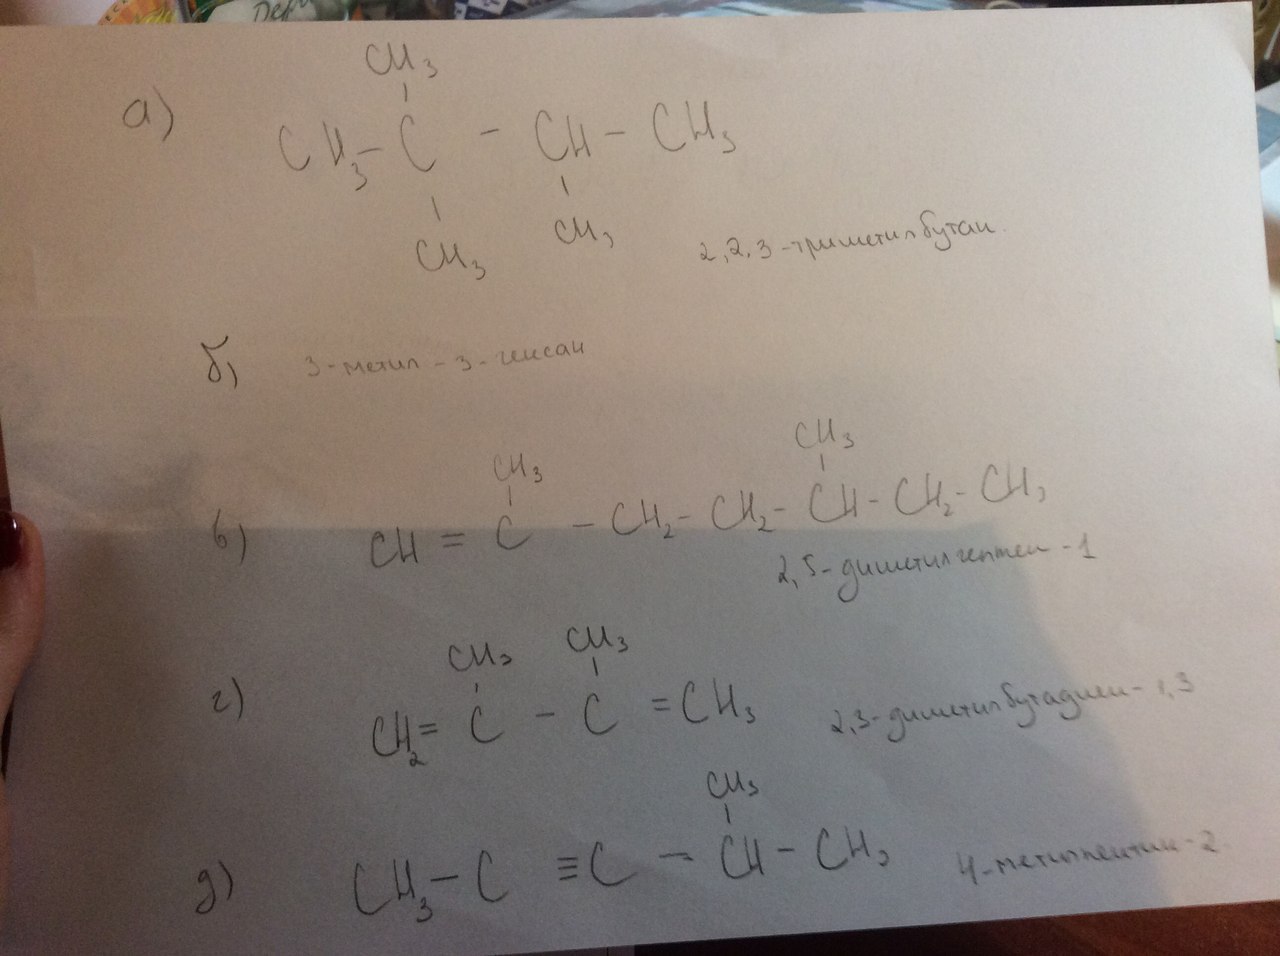 Дер
CH₃
а) CH₃ – C – CH – CH₃
CH₃ CH₃
2,2,3-триметилбутан
б) 3-метил-3-гексан
CH₃ CH₃
в) CH = C – CH₂ – CH₂ – CH – CH₂ – CH₃
2,5-диметилгептен-1
CH₃ CH₃
г) CH₂ = C – C = CH₃ 2,3-диметилбутадиен-1,3
CH₃
д) CH₃ – C ≡ C – CH – CH₃ 4-метилпентин-2